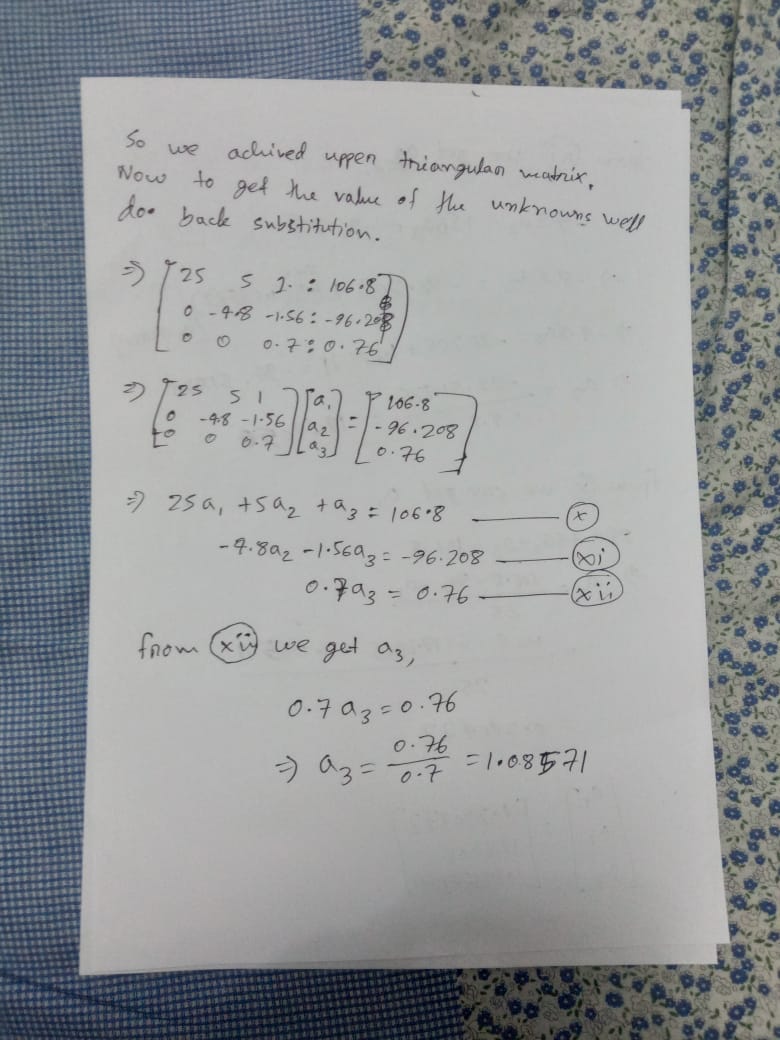 So we achived upper triangular matrix,
Now to get the value of the unknowns well
do back substitution.
⇒ [25 5 1 : 106.8
0 -4.8 -1.56 : -96.208
0 0 0.7 : 0.76]
⇒ [25 5 1 [a₁ = [106.8
0 -4.8 -1.56 a₂ -96.208
0 0 0.7] a₃] 0.76]
⇒ 25a₁ + 5a₂ + a₃ = 106.8 — (x)
-4.8a₂ - 1.56a₃ = -96.208 — (xi)
0.7a₃ = 0.76 — (xii)
from (xii) we get a₃,
0.7 a₃ = 0.76
⇒ a₃ = 0.76/0.7 = 1.08571